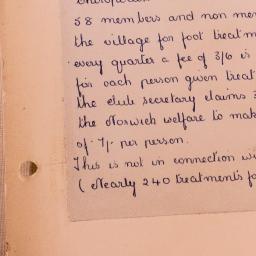 58 members and non mem
the village for foot treatm
every quarter a fee of 3/6 is
for each person given treat
the club secretary claims 3
the Norwich welfare to mak
of 7/- per person.
This is not in connection wi
(Nearly 240 treatments fo